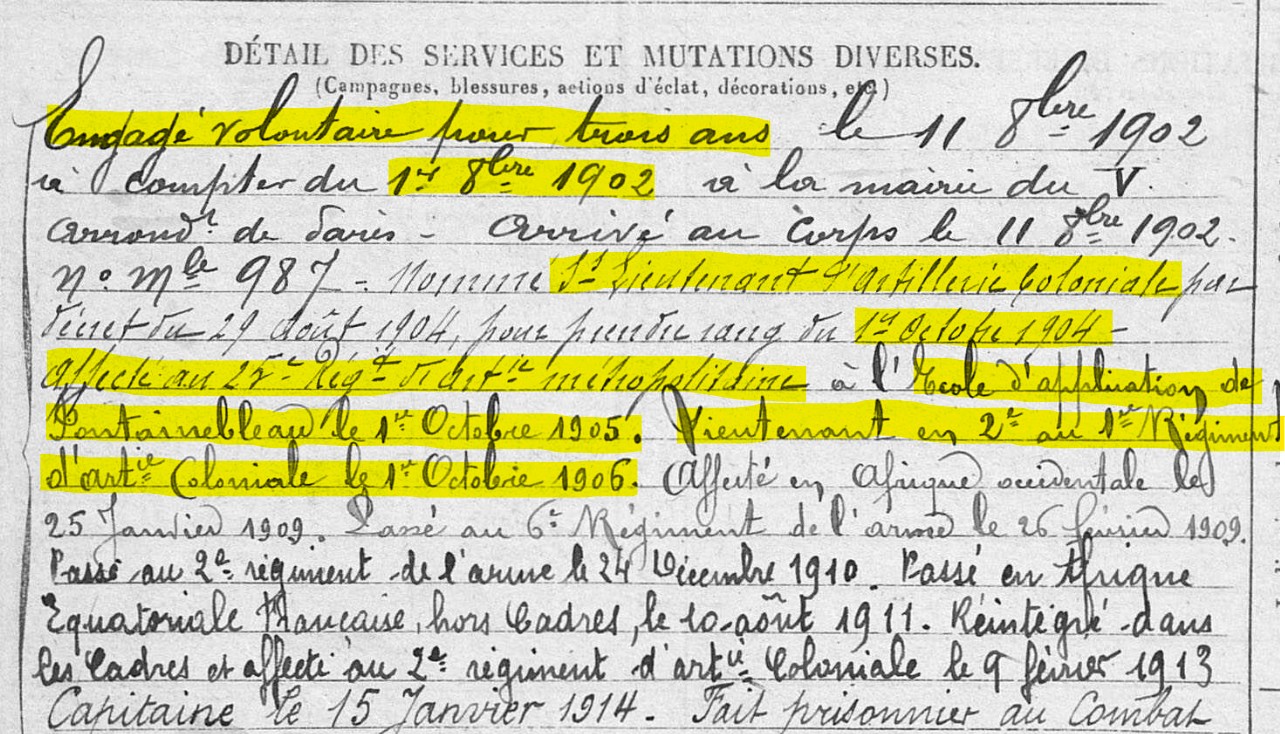 DÉTAIL DES SERVICES ET MUTATIONS DIVERSES.
(Campagnes, blessures, actions d'éclat, décorations, etc.)
Engagé volontaire pour trois ans le 11 8bre 1902
à compter du 1er 8bre 1902 à la mairie du V.
arrondt de Paris - Arrivé au Corps le 11 8bre 1902.
n° Mle 987 - Nommé St Lieutenant d'artillerie Coloniale par
décret du 29 août 1904, pour prendre rang du 1er Octobre 1904 -
affecté au 25e Régt d'artie métropolitaine à l'Ecole d'application de
Fontainebleau le 1er Octobre 1905. Lieutenant en 2e au 1er Régiment
d'artie Coloniale le 1er Octobre 1906. Affecté en Afrique occidentale le
25 Janvier 1909. Passé au 6e Régiment de l'arme le 26 février 1909.
Passé au 2e régiment de l'arme le 24 Décembre 1910. Passé en Afrique
Equatoriale Française, hors Cadres, le 10 août 1911. Réintégré dans
les Cadres et affecté au 2e régiment d'artie Coloniale le 9 février 1913
Capitaine le 15 Janvier 1914. Fait prisonnier au Combat